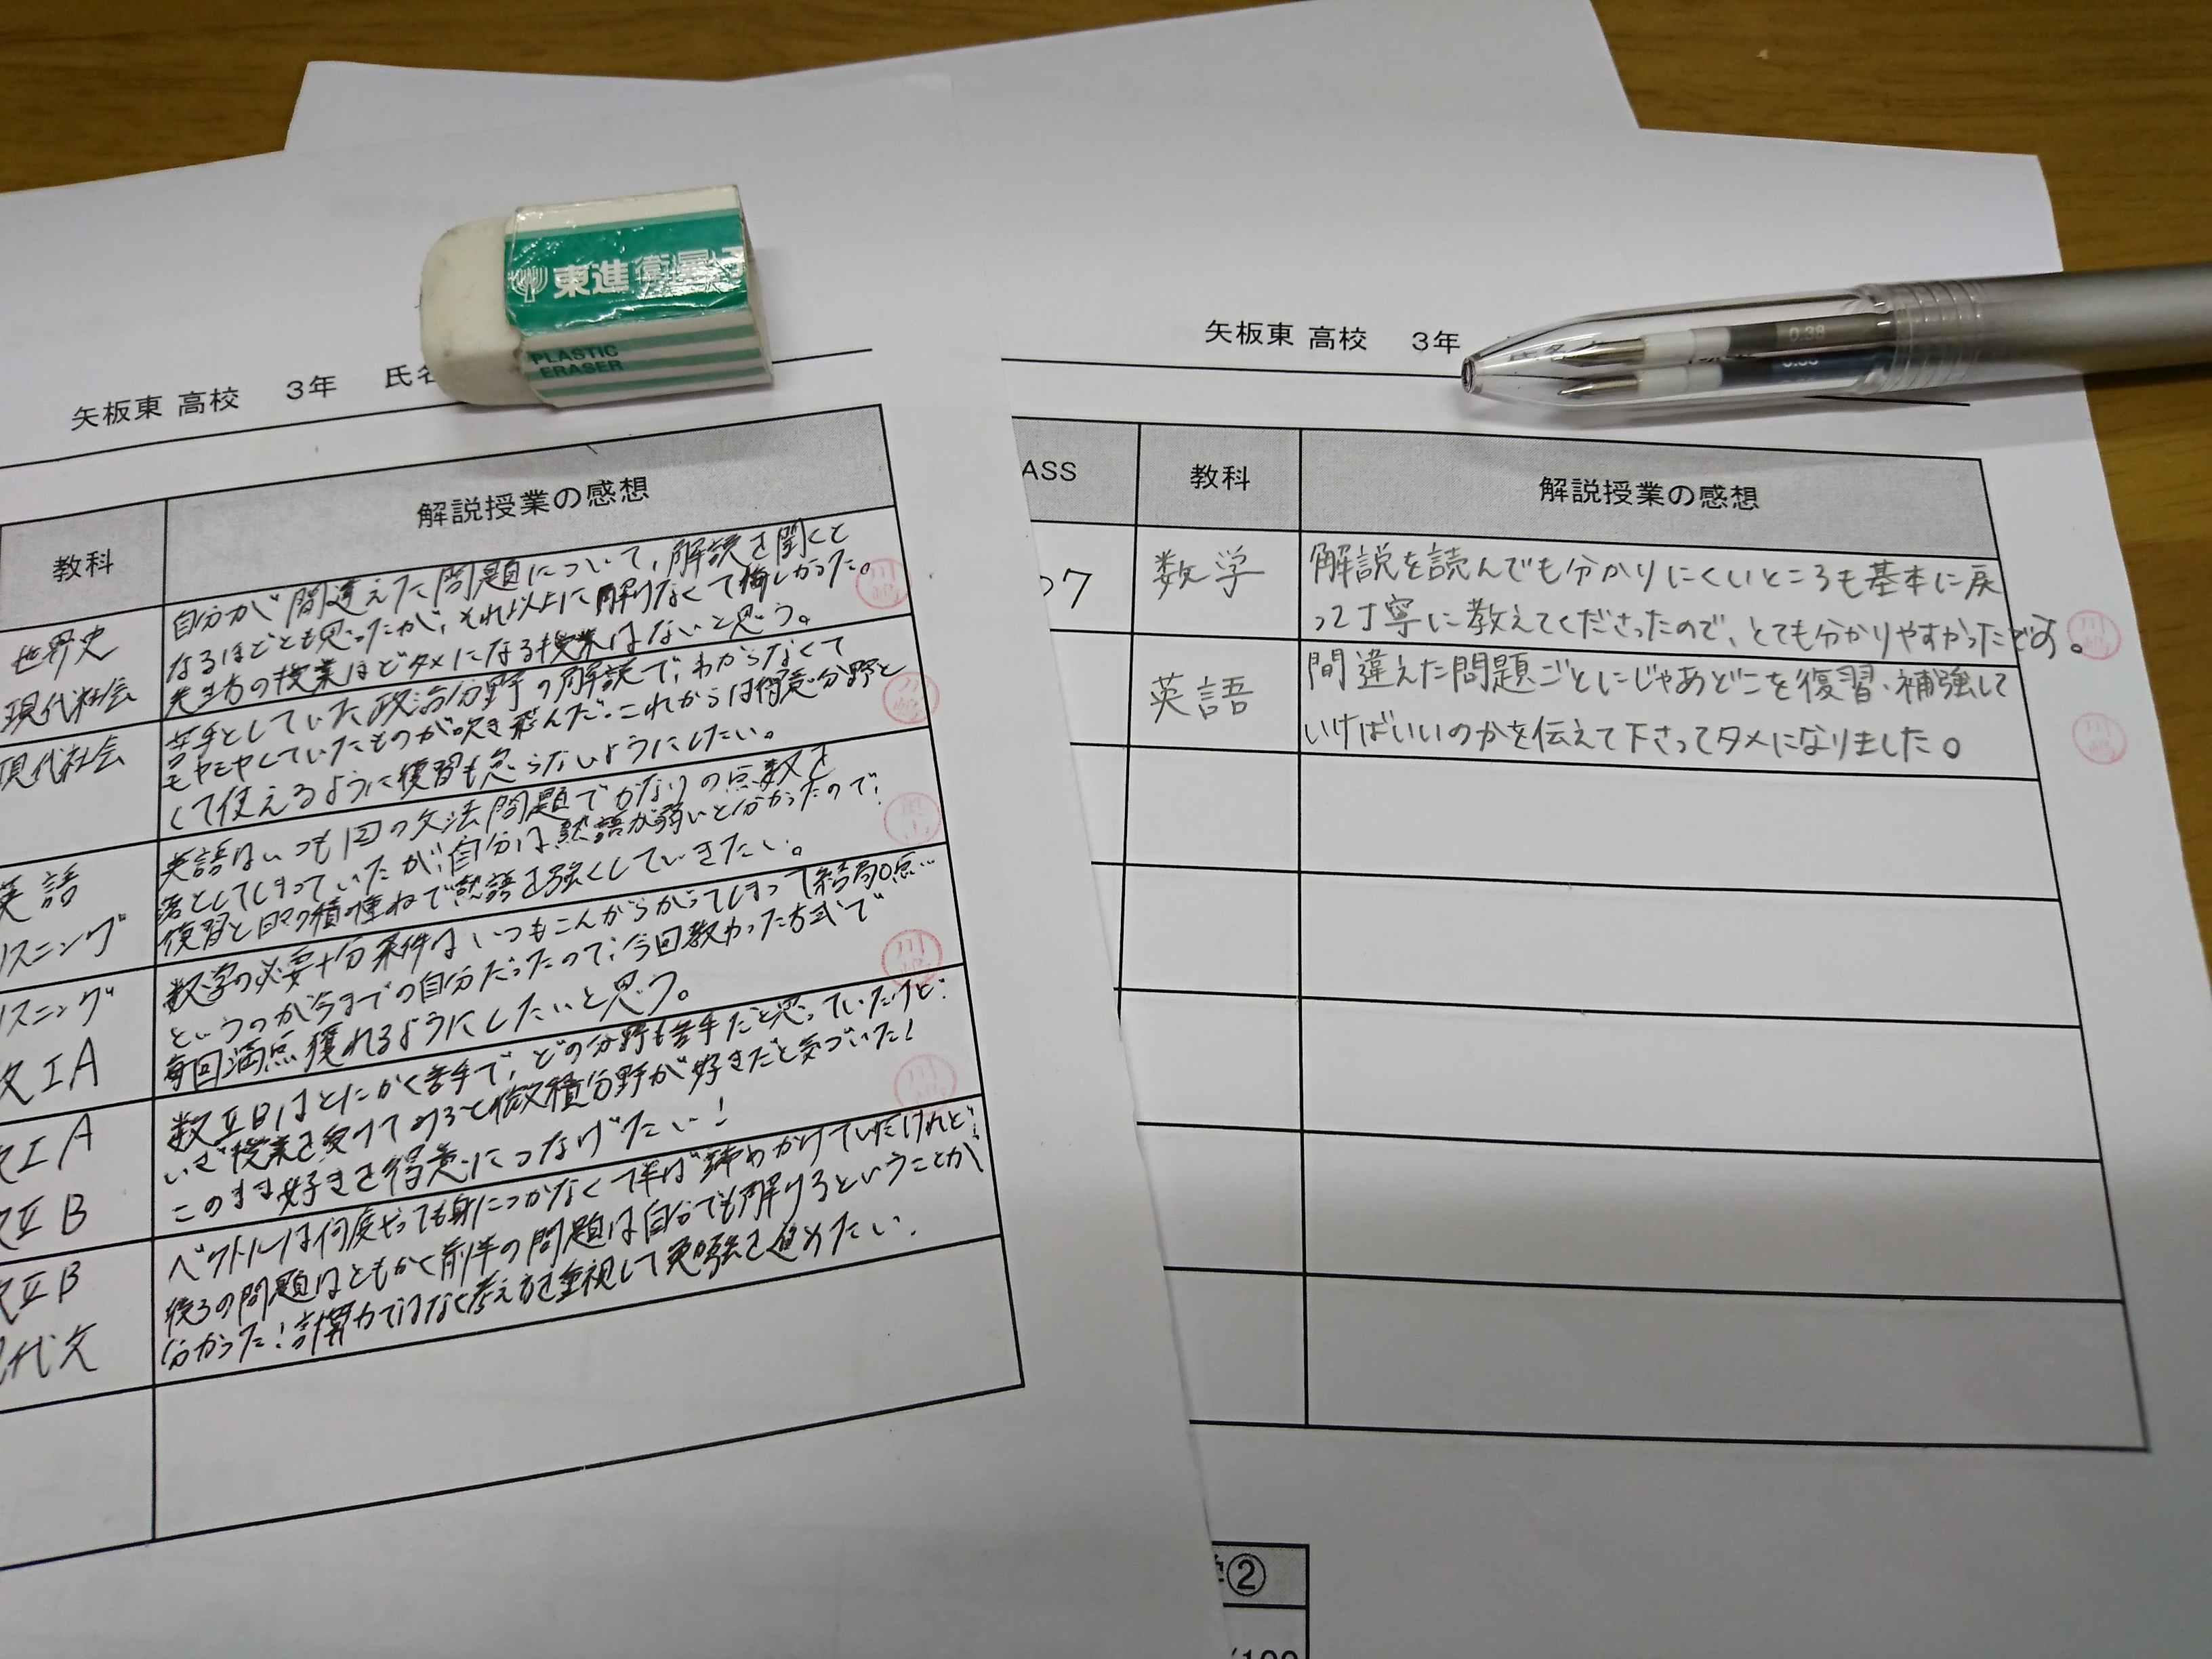 東進衛星
PLASTIC
ERASER
矢板東 高校 3年 氏名
教科 解説授業の感想
世界史
現代社会
自分が間違えた問題について、解説を聞くと
なるほどとも思ったが、それ以上に解けなくて悔しかった。
先生方の授業ほどタメになる授業はないと思う。
現代社会
苦手としていた政治分野の解説で、わからなくて
モヤモヤしていたものが吹き飛んだ。これからは得意分野と
して使えるように復習も怠らないようにしたい。
英語
リスニング
英語はいつも1回の文法問題でかなりの点数を
落としてしまっていたが、自分は熟語が弱いと分かったので、
復習と日々の積み重ねで熟語を強くしていきたい。
リスニング
数ⅠA
数学の必要十分条件はいつもこんがらがってしまって結局0点…
というのが今までの自分だったので、今回教わった方式で
毎回満点獲れるようにしたいと思う。
ⅠA
ⅡB
数ⅡBはとにかく苦手で、どの分野も苦手だと思っていたけど、
いざ授業を受けてみると微積分野が好きだと気づいた!
このまま好きを得意につなげたい!
ⅡB
現代文
ベクトルは何度やっても身につかなくて半ば諦めかけていたけれど、
後ろの問題はともかく前半の問題は自分でも解けるということが
分かった!計算力ではなく考え方を重視して勉強を進めたい.
矢板東 高校 3年 氏名
0.38
0.38
ASS 教科 解説授業の感想
07 数学
解説を読んでも分かりにくいところも基本に戻
って丁寧に教えてくださったので、とても分かりやすかったです。
英語
間違えた問題ごとにじゃあどこを復習、補強して
いけばいいのかを伝えて下さってタメになりました。
②
/100